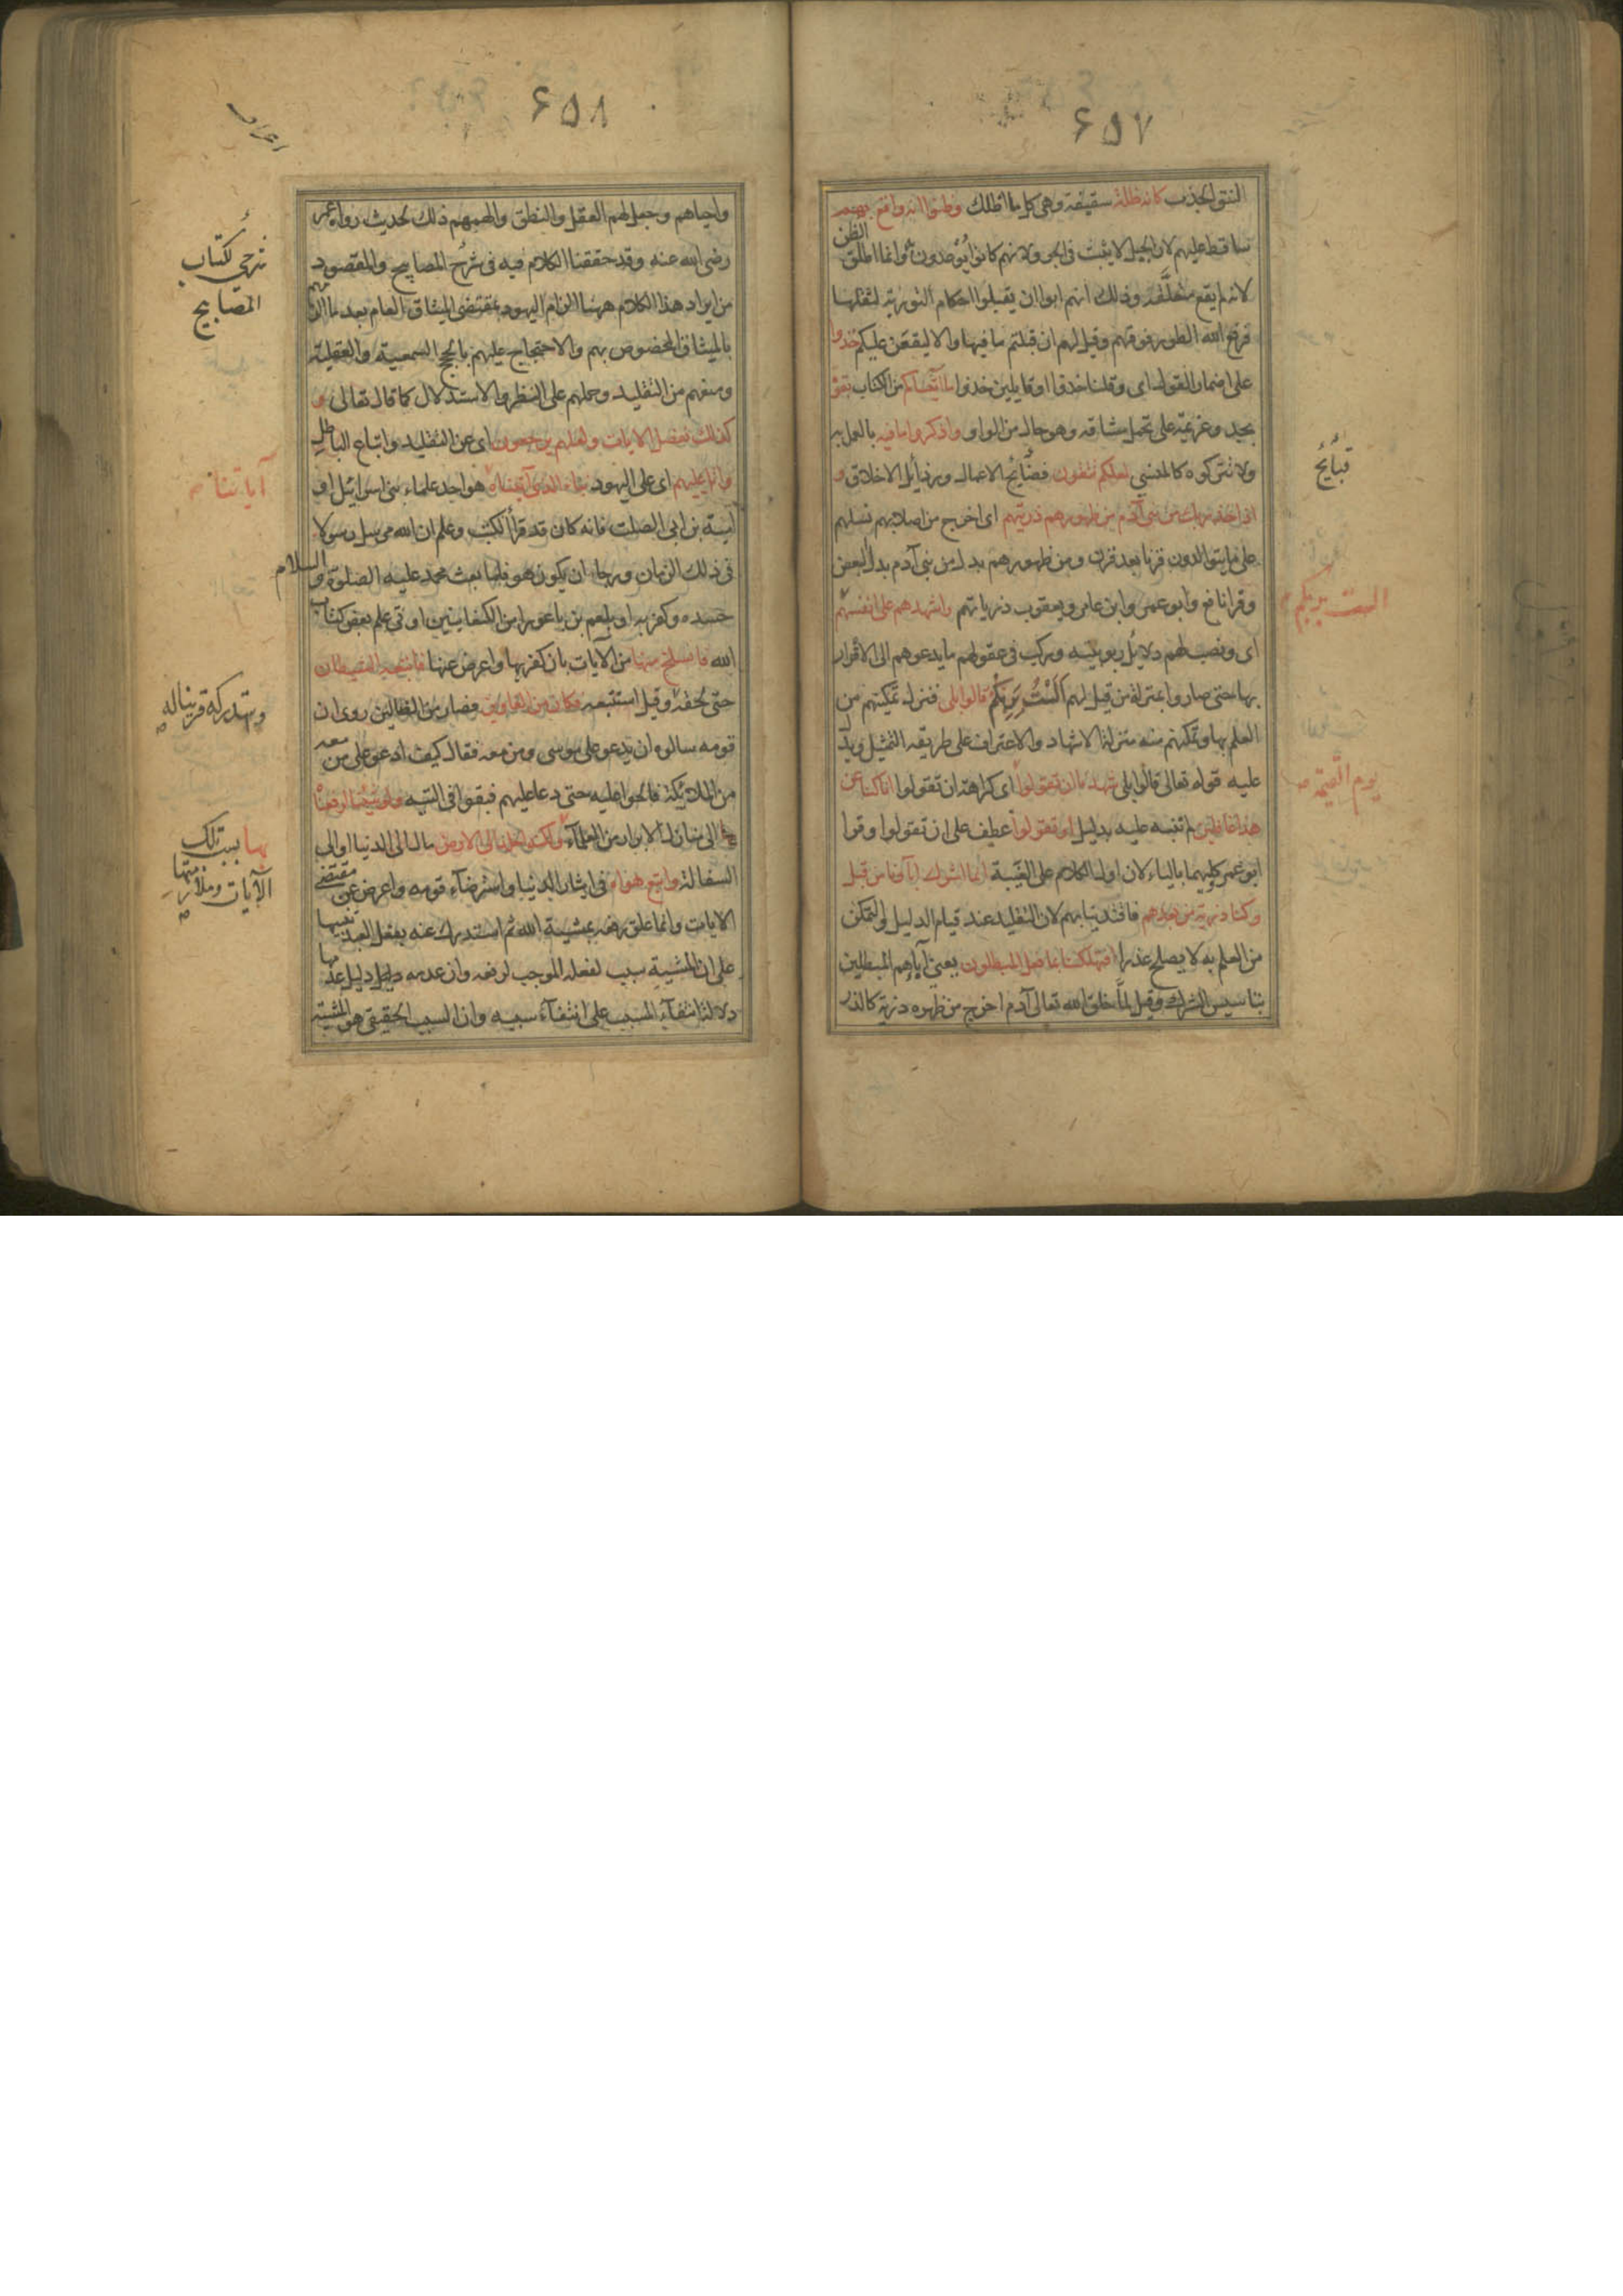 ٦٥٧
النتق الجذب كانه ظلة سقيفة وهى كل ما اظلك وظنوا انه واقع بهم
ساقط عليهم لان الجبل لا يثبت فى الجو ولانهم كانوا يوعدون به وانما اطلق الظن
لانه لم يقع متعلقه وذلك انهم ابوا ان يقبلوا احكام التورية لثقلها
فرفع الله الطور فوقهم وقيل لهم ان قبلتم ما فيها والا ليقعن عليكم خذوا
على اضمار القول اى وقلنا خذوا او قايلين خذوا ما آتيناكم من الكتاب بقوة
بجد وعزيمة على تحمل مشاقه وهو حال من الواو واذكروا ما فيه بالعمل به
ولا تتركوه كالمنسى لعلكم تتقون فضايح الاعمال ورذايل الاخلاق و
قبائح
اذ اخذ ربك من بنى آدم من ظهورهم ذريتهم اى اخرج من اصلابهم نسلهم
على ما يتوالدون قرنا بعد قرن ومن ظهورهم بدل من بنى آدم بدل البعض
وقرا نافع وابو عمرو وابن عامر ويعقوب ذرياتهم واشهدهم على انفسهم
الست بربكم
اى ونصب لهم دلايل ربوبيته وركب فى عقولهم ما يدعوهم الى الاقرار
بها حتى صاروا بمنزلة من قيل لهم الست بربكم قالوا بلى فنزل تمكينهم من
العلم بها وتمكنهم منه منزلة الاشهاد والاعتراف على طريقة التمثيل ويدل
عليه قوله تعالى قالوا بلى شهدنا ان تقولوا اى كراهة ان تقولوا انا كنا عن
يوم القيمة
هذا غافلين لم تنبه عليه بدليل او تقولوا عطف على ان تقولوا وقرا
ابو عمرو كليهما بالياء لان اول الكلام على الغيبة انما اشرك آباؤنا من قبل
وكنا ذرية من بعدهم فاقتدينا بهم لان التقليد عند قيام الدليل والتمكن
من العلم به لا يصلح عذرا افتهلكنا بما فعل المبطلون يعنى آباءهم المبطلين
بتاسيس الشرك وقيل لما خلق الله تعالى آدم اخرج من ظهره ذرية كالذر
٦٥٨
واحياهم وجعل لهم العقل والنطق والهمهم ذلك لحديث رواه عمر
رضى الله عنه وقد حققنا الكلام فيه فى شرح المصابيح والمقصود
المصابيح
من ايراد هذا الكلام ههنا الزام اليهود بمقتضى الميثاق العام بعد ما الزمهم
بالميثاق المخصوص بهم والاحتجاج عليهم بالحجج السمعية والعقلية
ومنعهم من التقليد وحملهم على النظر والاستدلال كما قال تعالى و
كذلك نفصل الايات ولعلهم يرجعون اى عن التقليد واتباع الباطل
واتل عليهم اى على اليهود نباء الذى آتيناه هو احد علماء بنى اسرائيل او
آياتنا
امية بن ابى الصلت فانه كان قد قرأ الكتب وعلم ان الله مرسل رسولا
فى ذلك الزمان ورجا ان يكون هو فلما بعث محمد عليه الصلوة والسلام
حسده وكفر به او بلعم بن باعورا من الكنعانيين اوتى علم بعض كتاب
الله فانسلخ منها من الآيات بان كفر بها واعرض عنها فاتبعه الشيطان
حتى لحقه وقيل استتبعه فكان من الغاوين فصار من الضالين روى ان
قومه سالوه ان يدعو على موسى ومن معه فقال كيف ادعو على من معه
من الملائكة فالحوا عليه حتى دعا عليهم فبقوا فى التيه ولو شئنا لرفعناه
الى منازل الابرار من العلماء ولكنه اخلد الى الارض مال الى الدنيا او الى
بها بسبب تلك
الآيات وملازمتها
السفالة واتبع هواه فى ايثار الدنيا واسترضاء قومه واعرض عن مقتضى
الايات وانما علق رفعه بمشية الله ثم استدرك عنه بفعل العبد تنبيها
على ان المشية سبب لفعله الموجب لرفعه وان عدمه دليل عدمها
دلالة انتفاء المسبب على انتفاء سببه وان السبب الحقيقى هو المشية